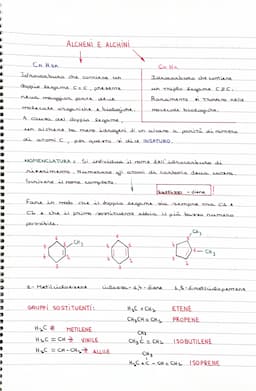 ALCHENI E ALCHINI
CnH2n
CnHn
Idrocarburo che contiene un
doppio legame C=C, presente
nella maggior parte delle
molecole organiche e biologiche.
A causa del doppio legame,
un alchene ha meno idrogeni di un alcano a parità di numero
di atomi C, per questo si dice INSATURO.
Idrocarburo che contiene
un triplo legame C≡C.
Raramente si trovano nelle
molecole biologiche.
NOMENCLATURA: Si individua il nome dell'idrocarburo di
riferimento. Numerare gli atomi di carbonio della catena.
Scrivere il nome completo.
suffisso -diene
Fare in modo che il doppio legame sia sempre tra C1 e
C2 e che il primo sostituente abbia il più basso numero
possibile.
CH3
CH3
CH3
1,5-dimetilciclopentene
GRUPPI SOSTITUENTI:
H2C METILENE
H2C = CH VINILE
H2C = CH-CH2 ALLILE
H2C = CH2 ETENE
CH3CH = CH2 PROPENE
CH3
CH3C = CH2 ISOBUTILENE
CH3
H2C = C - CH = CH2 ISOPRENE